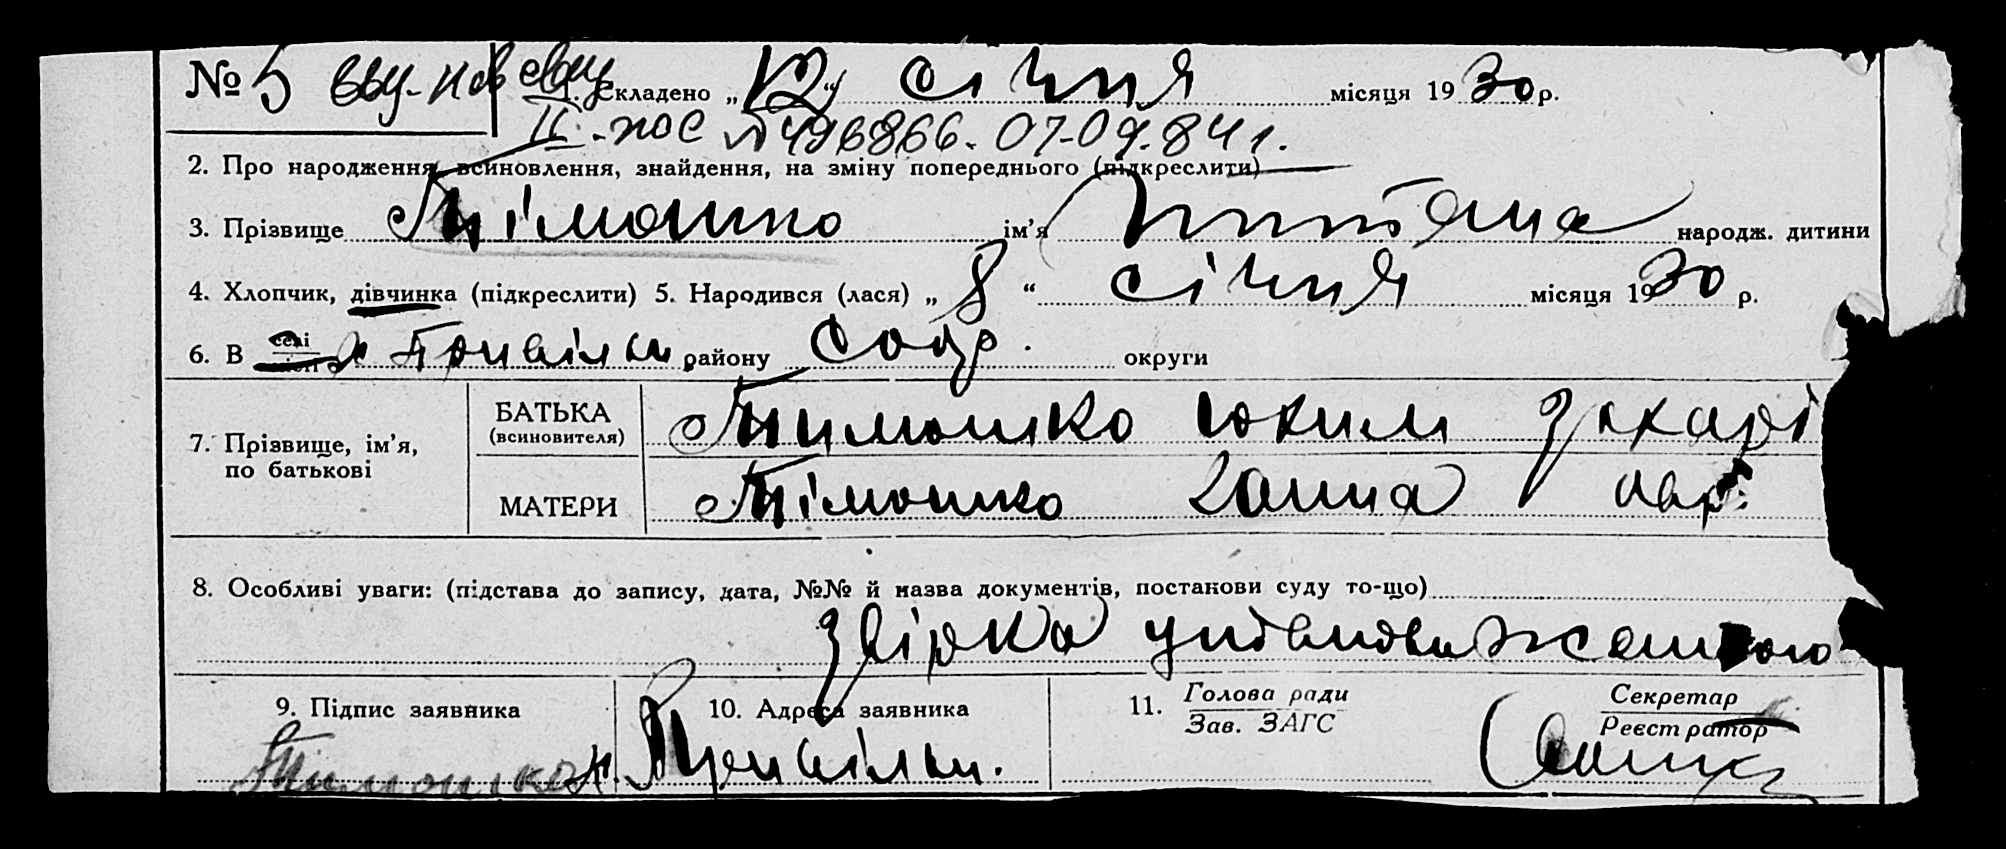 № 5 1. Складено „12“ січня місяця 1930 р.
II-ЖОС № 496866. 07-09.84 г.
2. Про народження, всиновлення, знайдення, на зміну попереднього (підкреслити)
3. Прізвище Тімошко ім’я народж. дитини
4. Хлопчик, дівчинка (підкреслити) 5. Народився (лася) „8“ січня місяця 1930 р.
6. В селі району округи
7. Прізвище, ім’я, по батькові
БАТЬКА (всиновителя) Тимошко Юхим Захарі
МАТЕРИ Тімошко Ганна
8. Особливі уваги: (підстава до запису, дата, №№ й назва документів, постанови суду то-що)
9. Підпис заявника 10. Адреса заявника 11. Голова ради Зав. ЗАГС Секретар Реєстратор
Тимошко